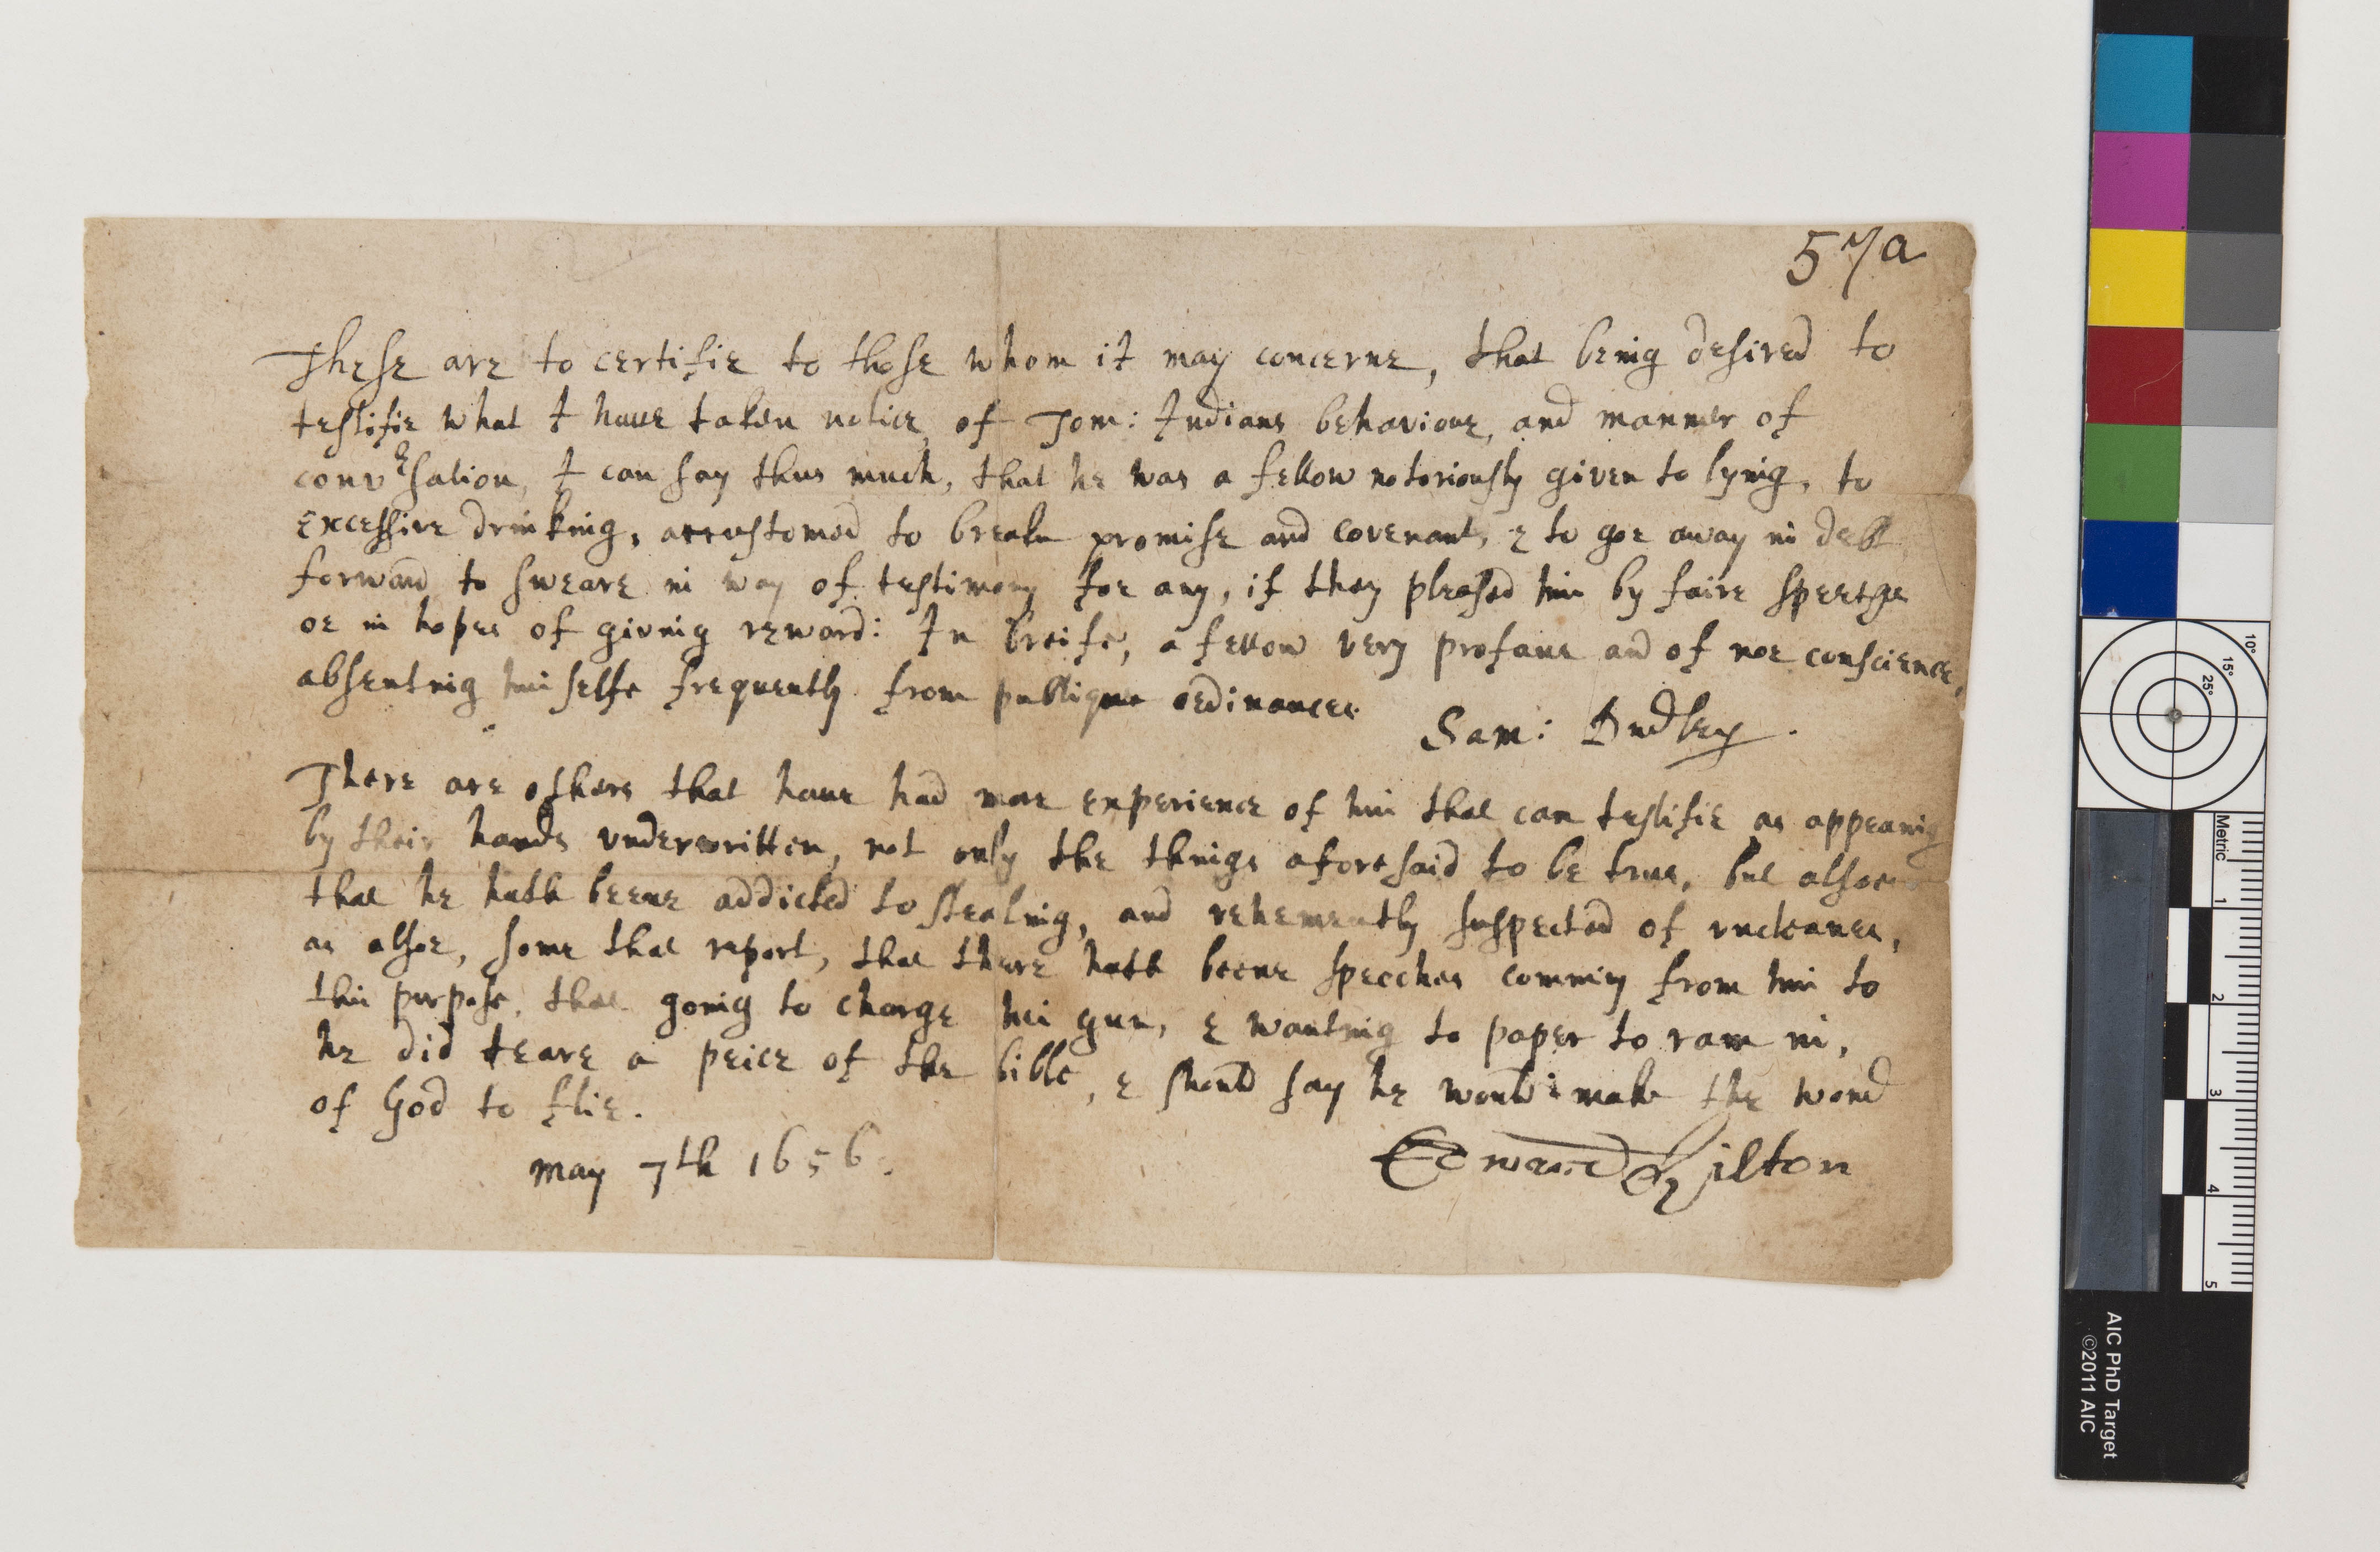 57a
These are to certifie to those whom it may concerne, that being desired to
testifie what I haue taken notice of Tom: Indians behaviour, and manner of
conversation, I can say thus much, that he was a fellow notoriously given to lying, to
excessive drinking, accustomed to breake promise and covenant, & to goe away in debt
forward to sweare in way of testimony for any, if they pleased him by faire speeche
or in hopes of giving reward: In breife, a fellow very profane and of noe conscience,
absenting himselfe frequently from publique ordinances
Sam: Dudley.
There are others that haue had more experience of him that can testifie as appearing
by their hands vnderwritten, not only the things aforesaid to be true, but alsoe
that he hath beene addicted to stealing, and vehemently suspected of vncleanes,
as alsoe, some that report, that there hath beene speeches comming from him to
this purpose, that going to charge his gun, & wanting to paper to ram in,
he did teare a peice of the bible, & should say he would make the word
of God to flie.
may 7th 1656.
Edward Hilton
10°
15°
25°
Metric
1
2
3
4
5
AIC PhD Target
©2011 AIC